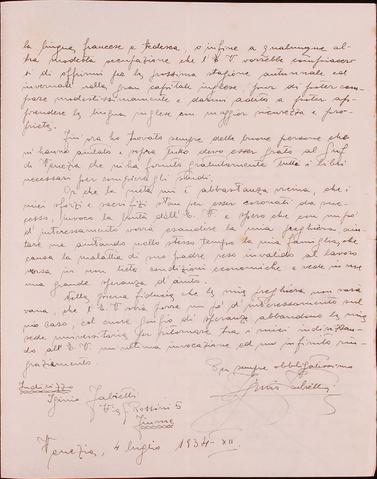 la lingua francese e tedesca, o infine a qualunque al-
tra modesta occupazione che l'E.V. vorrebbe compiacer
si di offrirmi per la prossima stagione autunnale ed
invernale nella gran capitale inglese, pur di poter cam-
pare modestissimamente e darmi adito a poter ap-
prendere la lingua inglese con maggior sicurezza e pro-
fitto.
Fin'ora ho trovato sempre delle buone persone che
mi hanno aiutato e sopra tutto devo esser grato al
di Venezia che mi ha fornito gratuitamente tutti i libri
necessari per compiere gli studi.
Or che la meta mi è abbastanza vicina, che i
miei sforzi e sacrifizi stan per esser coronati da suc-
cesso, invoco la bontà dell'E.V. e spero che con un po'
d'interessamento vorrà esaudire la mia preghiera, aiu-
tare me aiutando nello stesso tempo la mia famiglia, che
causa la malattia di mio padre reso invalido al lavoro
versa in non liete condizioni economiche e vede in me
una grande speranza d'aiuto.
Nella ferma fiducia che la mia preghiera non sarà
vana, che l'E.V. vorrà aver un po' d'interessamento sul
mio caso, col cuore gonfio di speranza abbandono la mia
sede universitaria per ritornare tra i miei indirizzan-
do all'E.V. un'ultima invocazione ed un infinito rin-
graziamento.
Suo sempre obbligatissimo
Indirizzo
Iginio
Via Rossini 5
Fiume
Venezia, 4 luglio 1934-XII